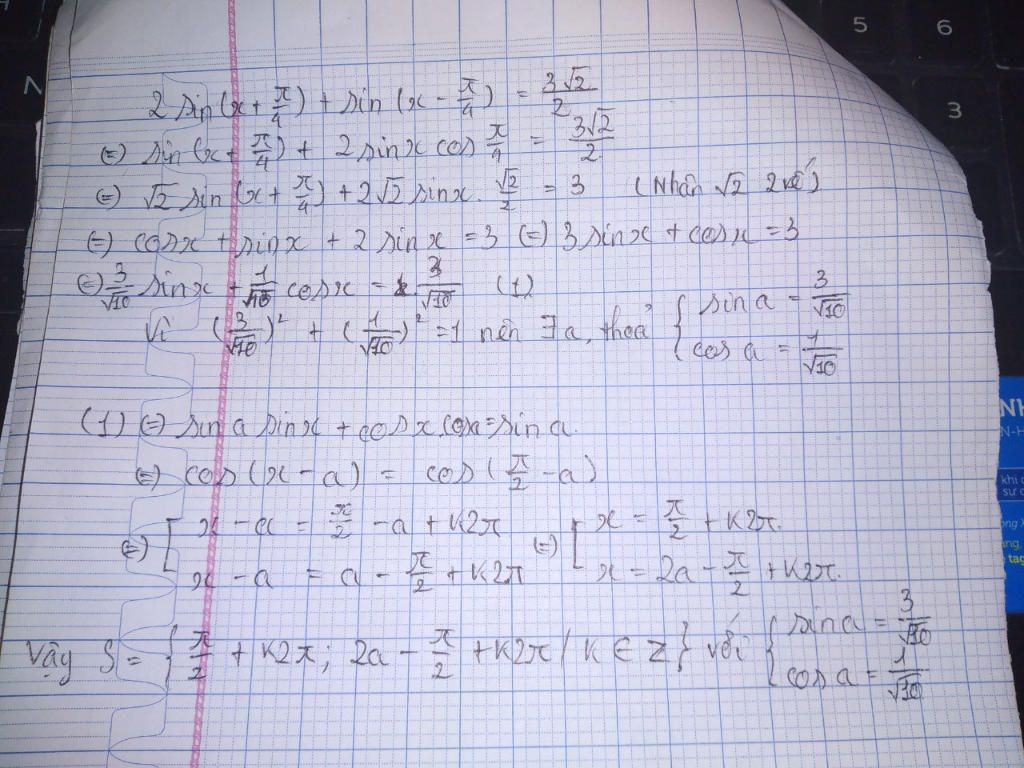 5 6
3
2 sin(x + π/4) + sin(x - π/4) = 3√2/2
(=) sin(x + π/4) + 2 sinx cos π/4 = 3√2/2
(=) √2 sin(x + π/4) + 2√2 sinx. √2/2 = 3 (Nhân √2 2 vế)
(=) cosx + sinx + 2 sinx = 3 (=) 3 sinx + cosx = 3
(=) 3/√10 sinx + 1/√10 cosx = 3/√10 (1)
Vì (3/√10)² + (1/√10)² = 1 nên ∃ a, thoả { sin a = 3/√10
cos a = 1/√10
(1) (=) sin a sinx + cosx.cosa = sin a.
(=) cos(x - a) = cos(π/2 - a)
(=) [ x - a = π/2 - a + k2π (=) [ x = π/2 + k2π.
x - a = a - π/2 + k2π x = 2a - π/2 + k2π.
Vậy S = { π/2 + k2π; 2a - π/2 + k2π / k ∈ Z } với { sin a = 3/√10
cos a = 1/√10
NH
N-H
khi
sư
tag